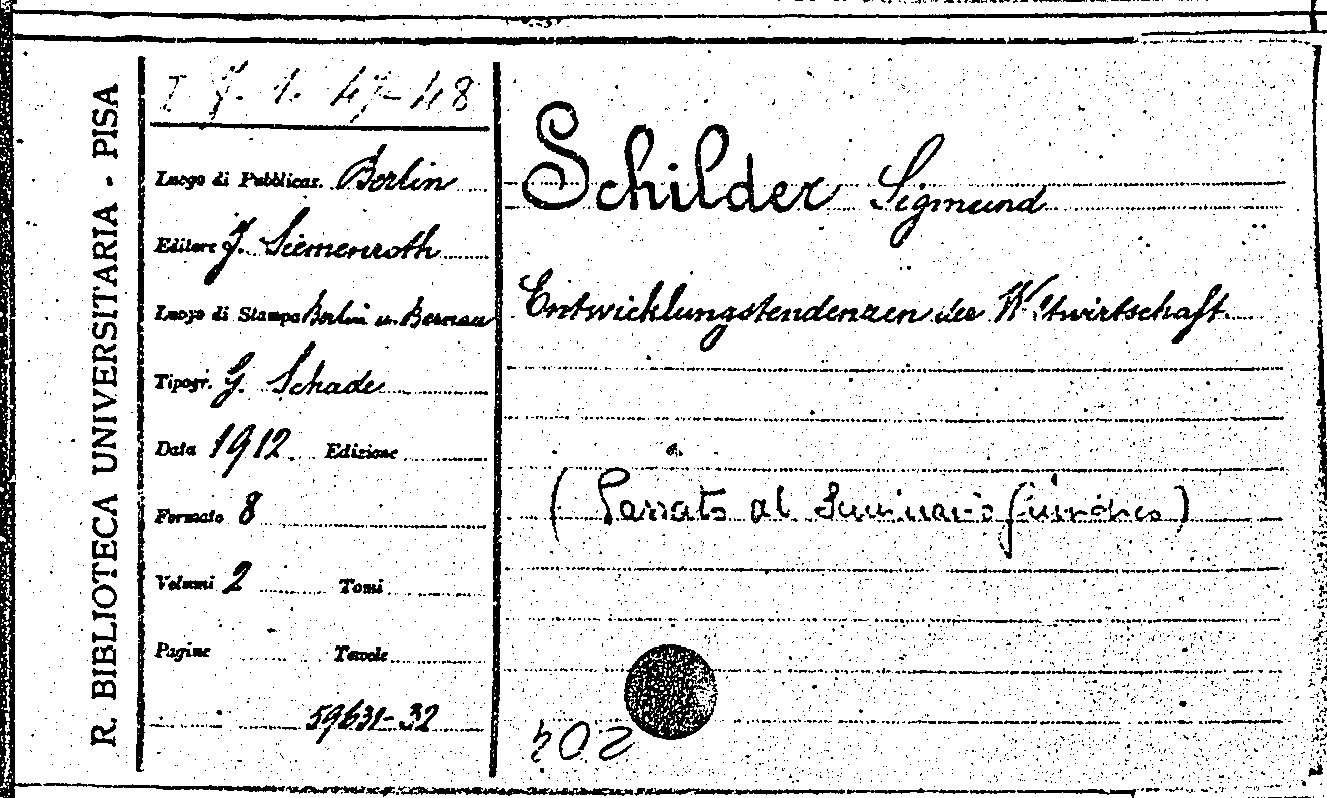 R. BIBLIOTECA UNIVERSITARIA - PISA
I g. 1. 47-48
Luogo di Pubblicaz. Berlin
Editore J. Siemenroth
Luogo di Stampa Berlin u. Bernau
Tipogr. G. Schade
Data 1912 Edizione
Formato 8
Volumi 2 Tomi
Pagine Tavole
59631-32
Schilder Sigmund
Entwicklungstendenzen der Weltwirtschaft
(Passato al Seminario giuridico)